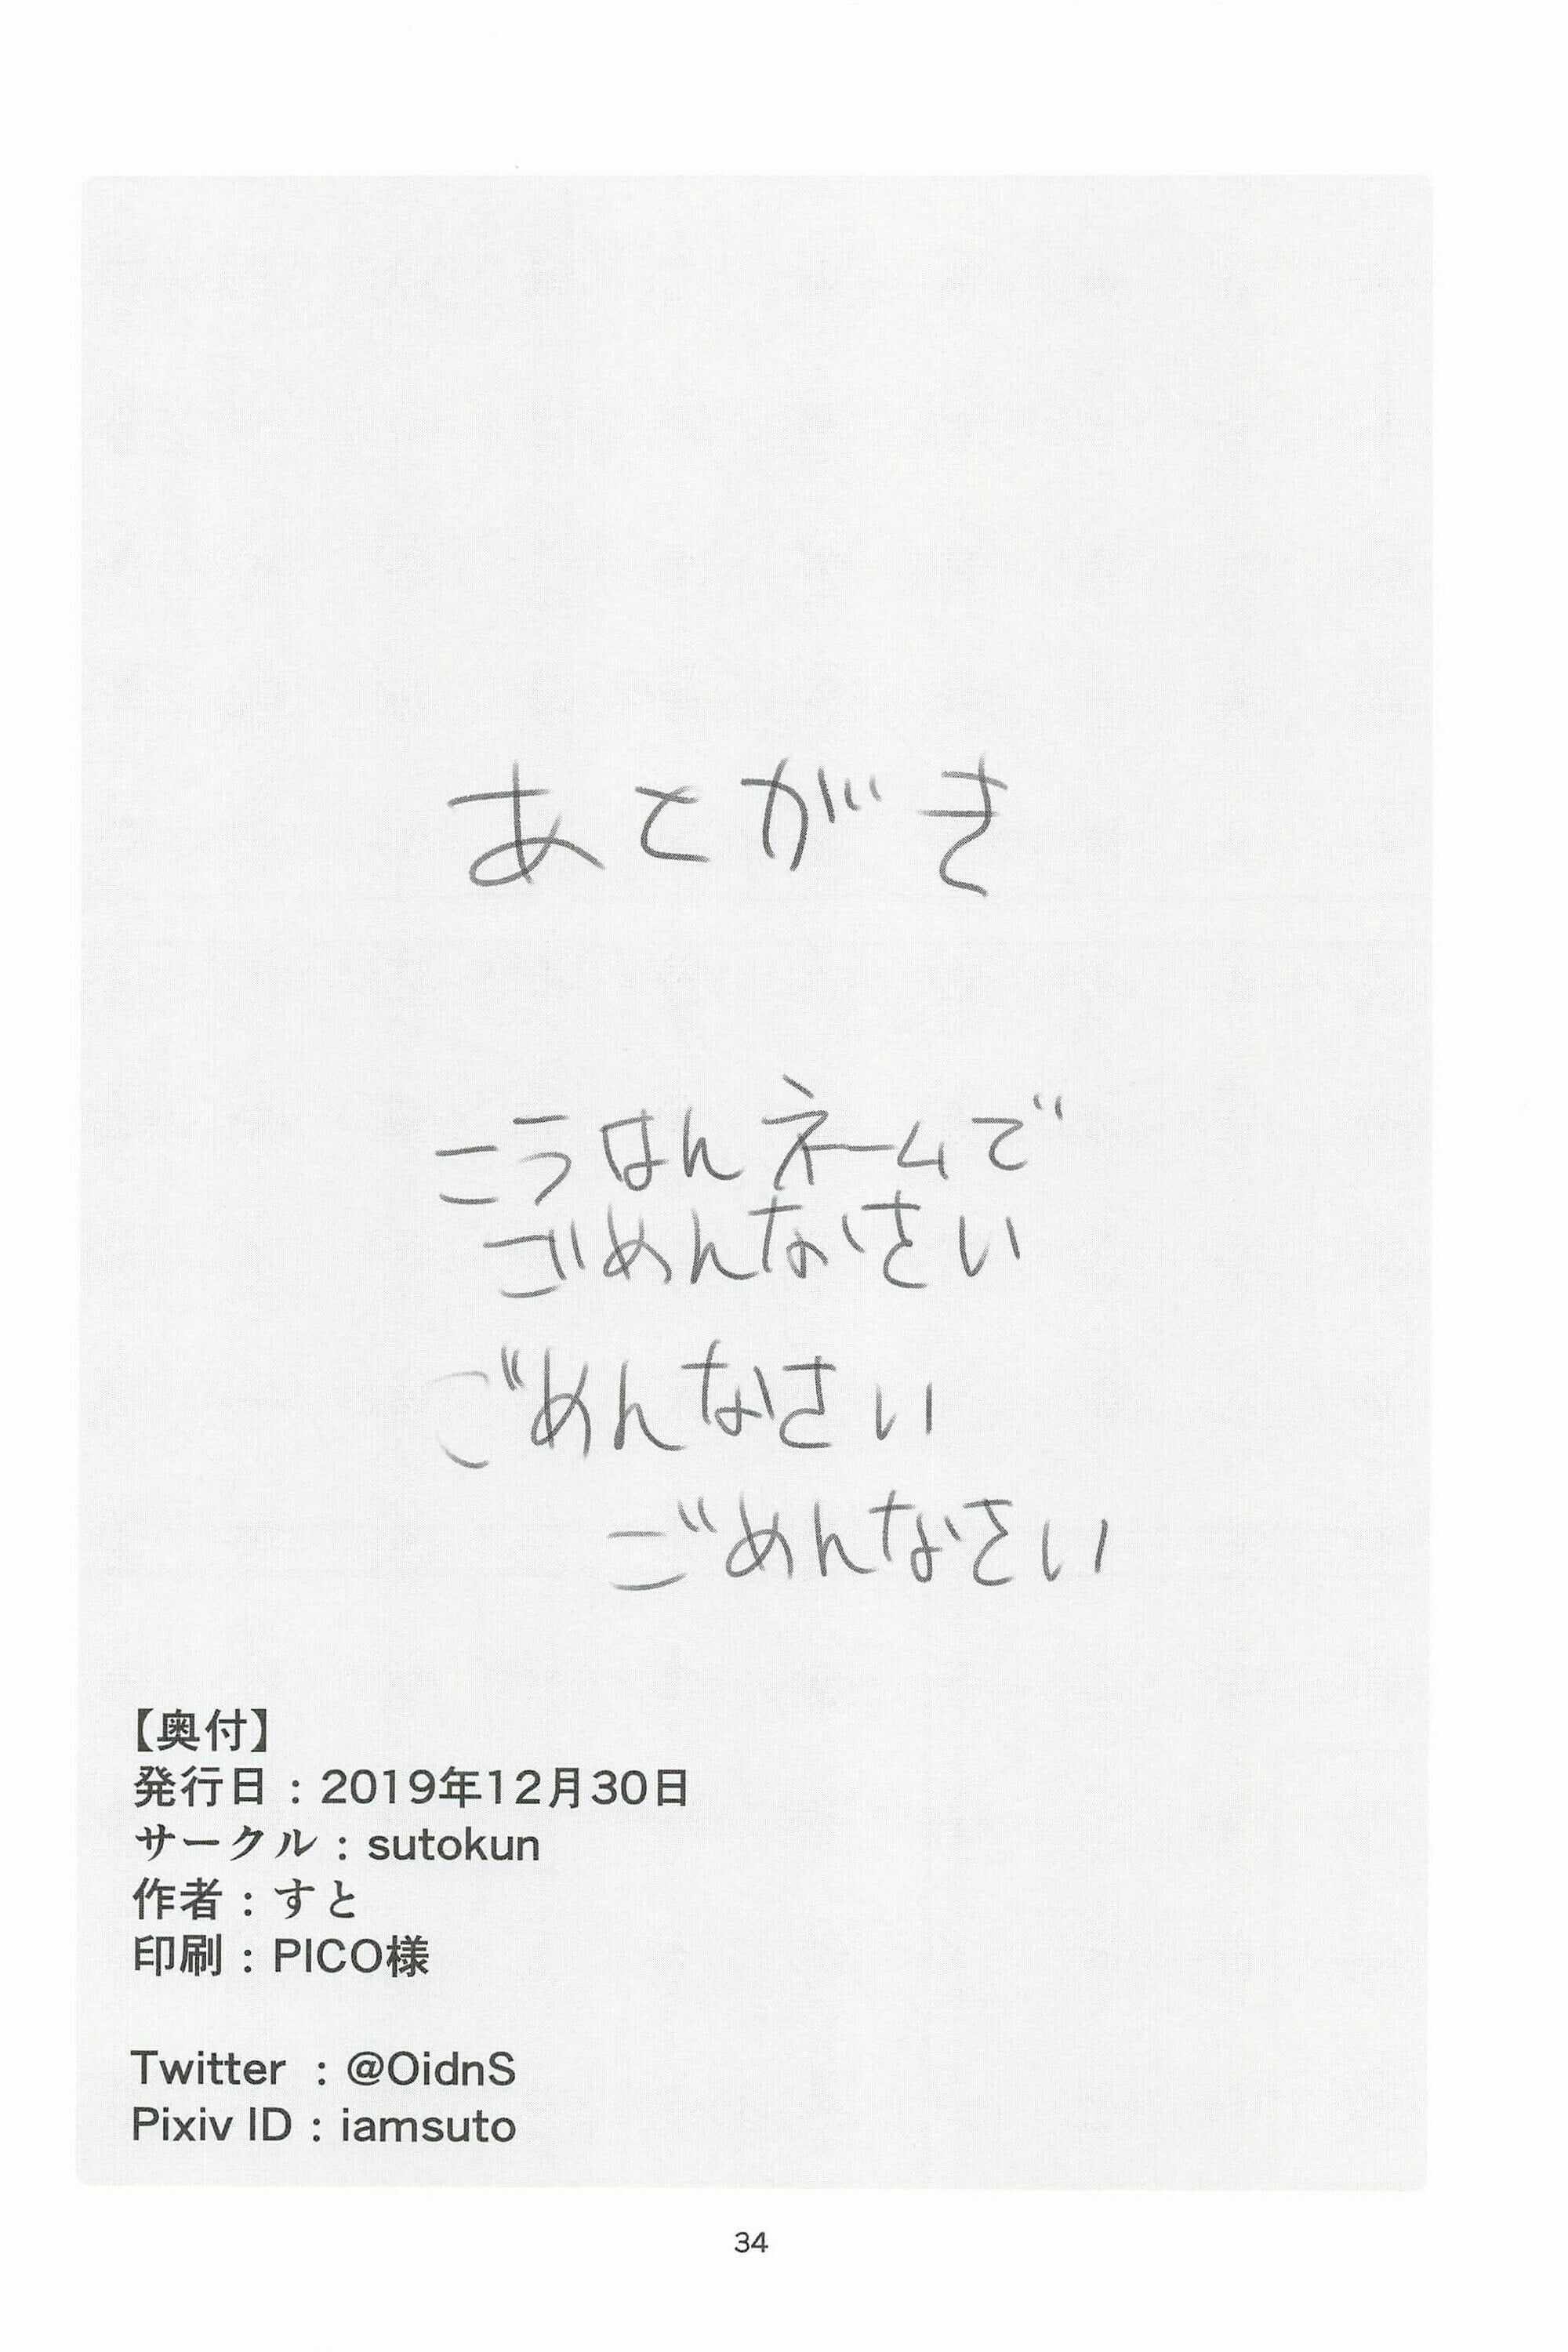 あとがき
こうはんネームで
ごめんなさい
ごめんなさい
ごめんなさい
【奥付】
発行日：2019年12月30日
サークル：sutokun
作者：すと
印刷：PICO様
Twitter ：@OidnS
Pixiv ID：iamsuto
34